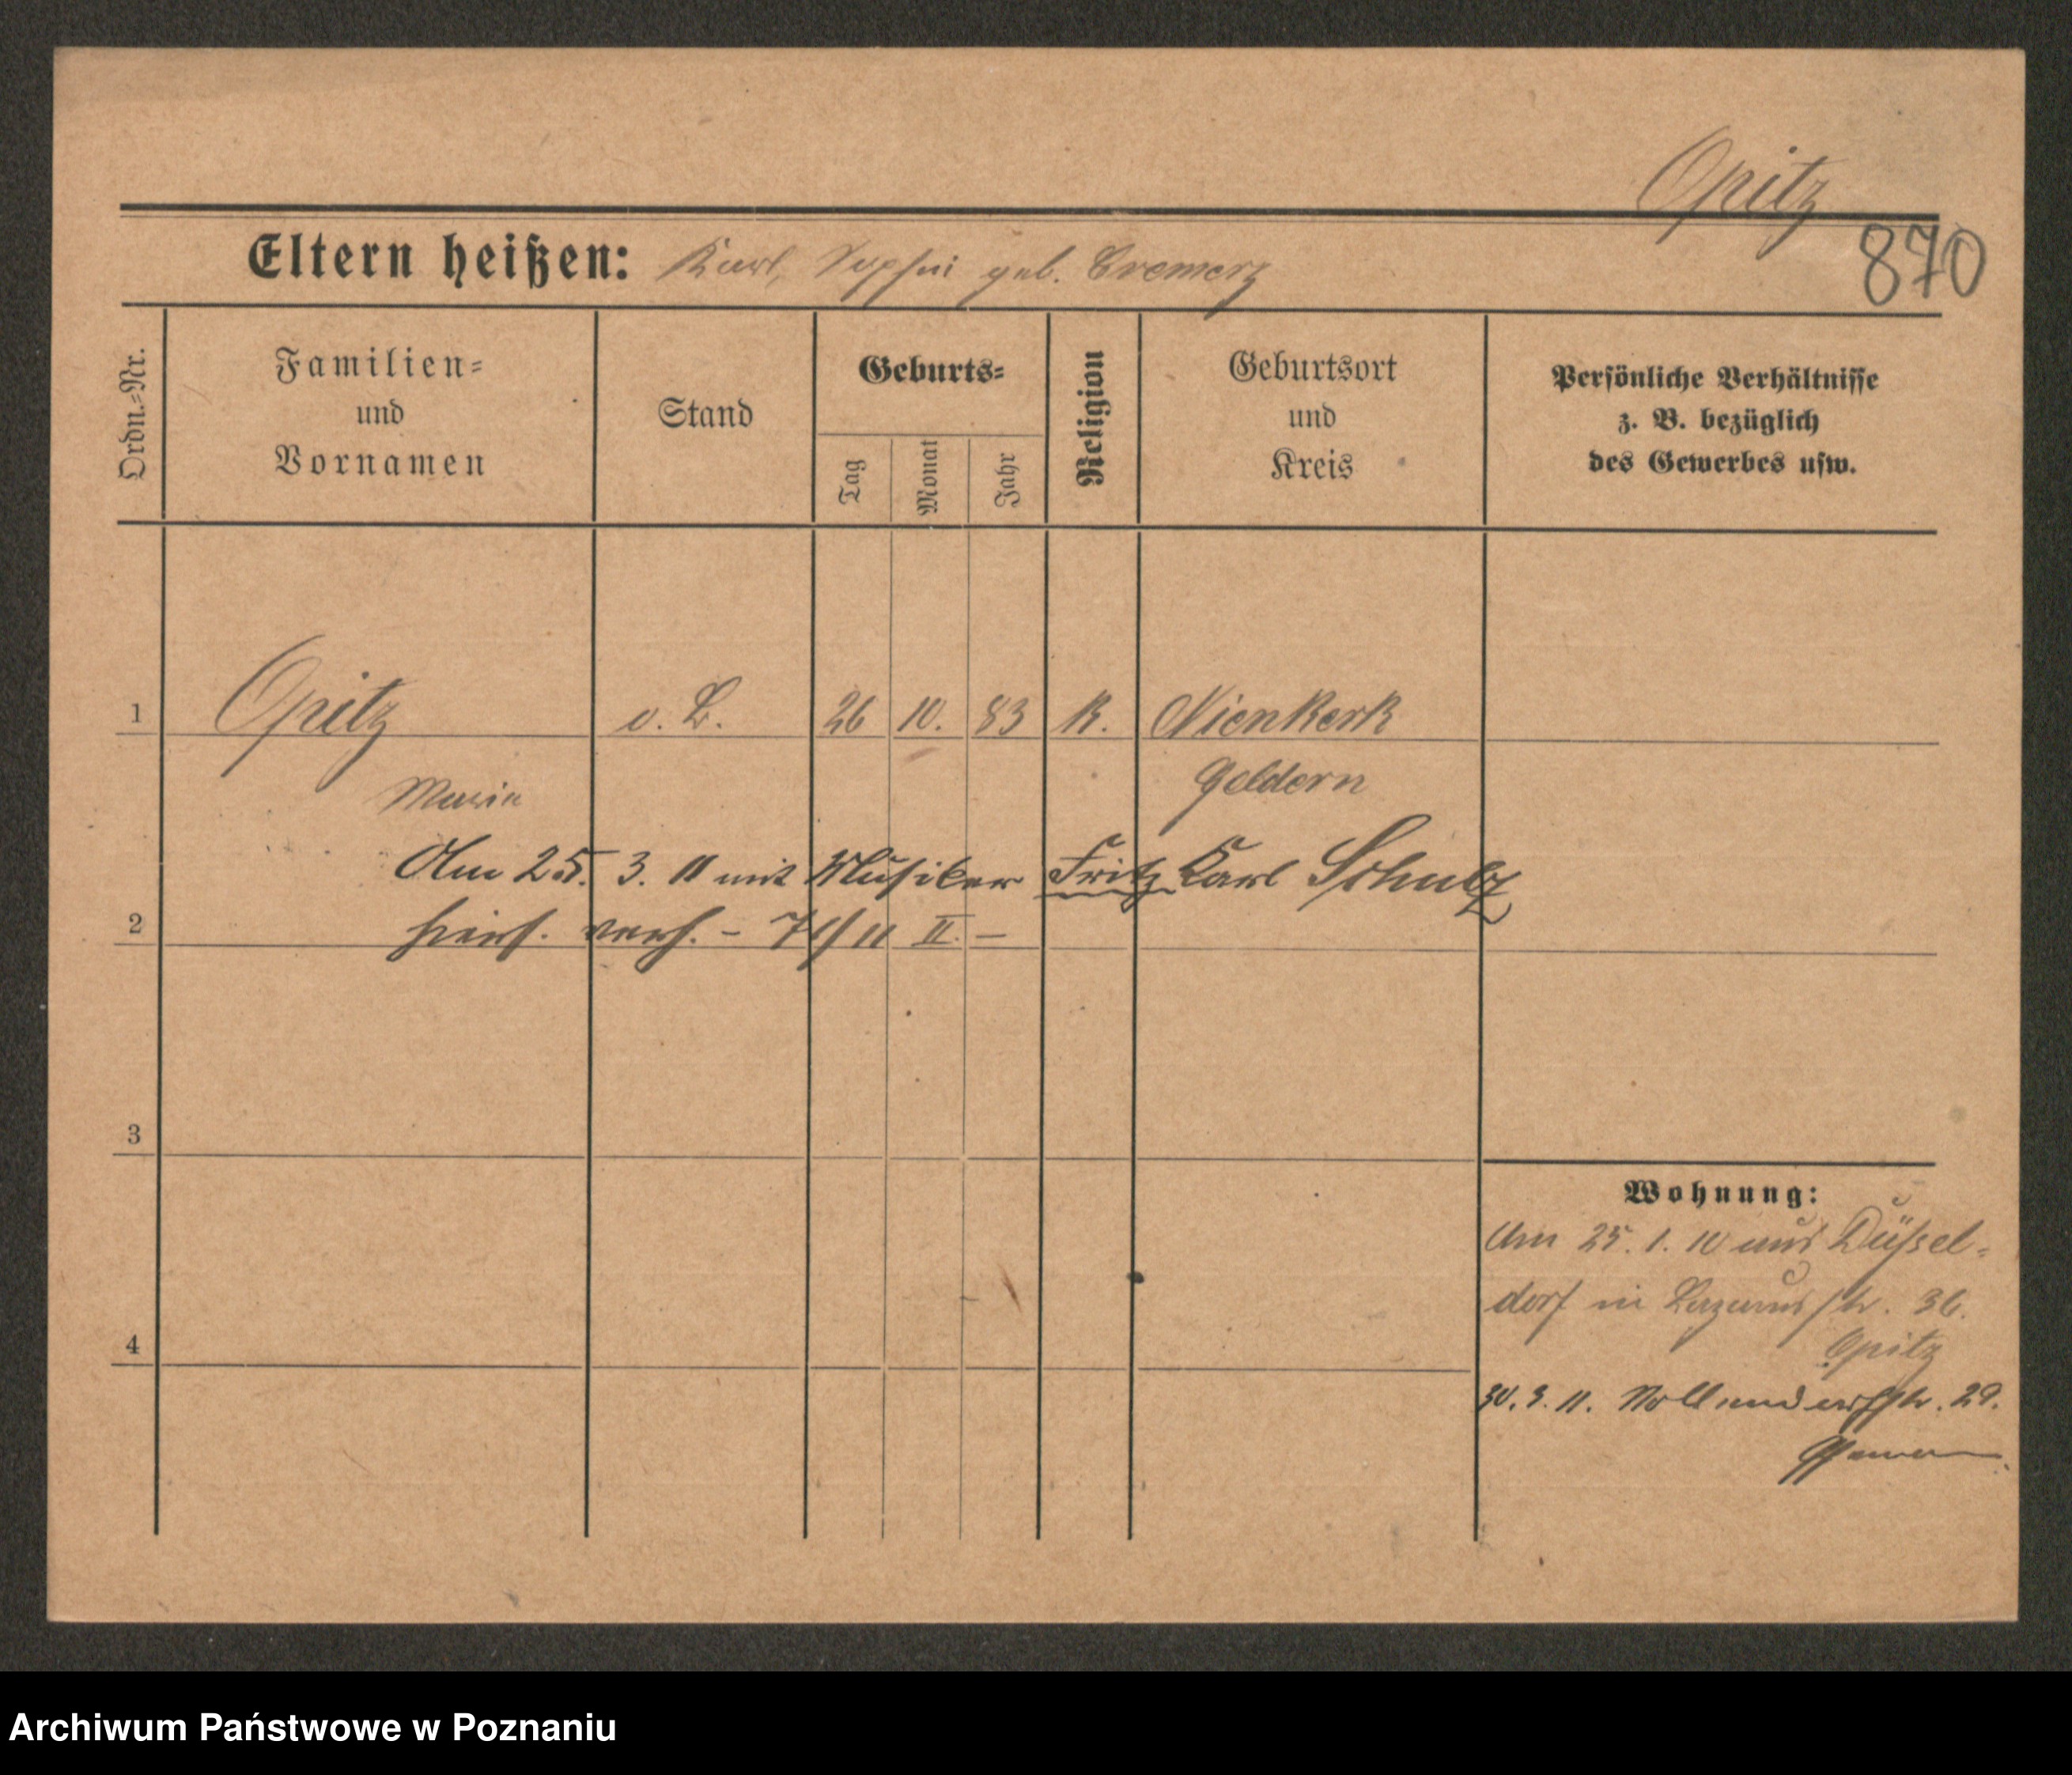 Opitz
870
Eltern heißen: Karl, Sophie geb. Cremerz
Ordn.-Nr.
Familien-
und
Vornamen
Stand
Geburts-
Tag
Monat
Jahr
Religion
Geburtsort
und
Kreis
Persönliche Verhältnisse
z. B. bezüglich
des Gewerbes usw.
1 Opitz o. B. 26 10. 83 K. Nienkerk
Maria Geldern
Am 25. 3. 11 mit Musiker Fritz Karl Schulz
2 hiers. verh. - 71/11 II. -
3
4
Wohnung:
Am 25. 1. 10 aus Düssel-
dorf in Lazarusstr. 36.
Opitz
30. 3. 11. Nollendorfstr. 29.
Archiwum Państwowe w Poznaniu